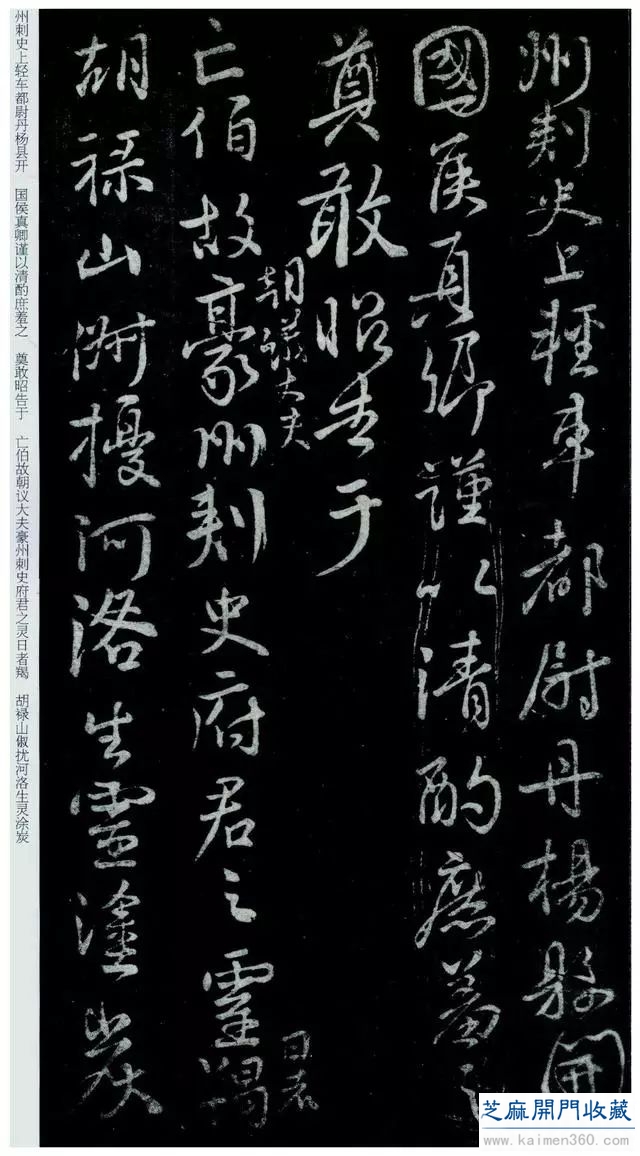 州刺史上輕車都尉丹楊縣開
國侯真卿謹以清酌庶羞之
奠敢昭告于
亡伯故豪州刺史府君之靈羯
朝議大夫
日者
胡祿山俶擾河洛生靈塗炭
州刺史上轻车都尉丹杨县开 国侯真卿谨以清酌庶羞之 奠敢昭告于 亡伯故朝议大夫豪州刺史府君之灵日者羯 胡禄山俶扰河洛生灵涂炭
芝麻開門收藏
www.kaimen360.com